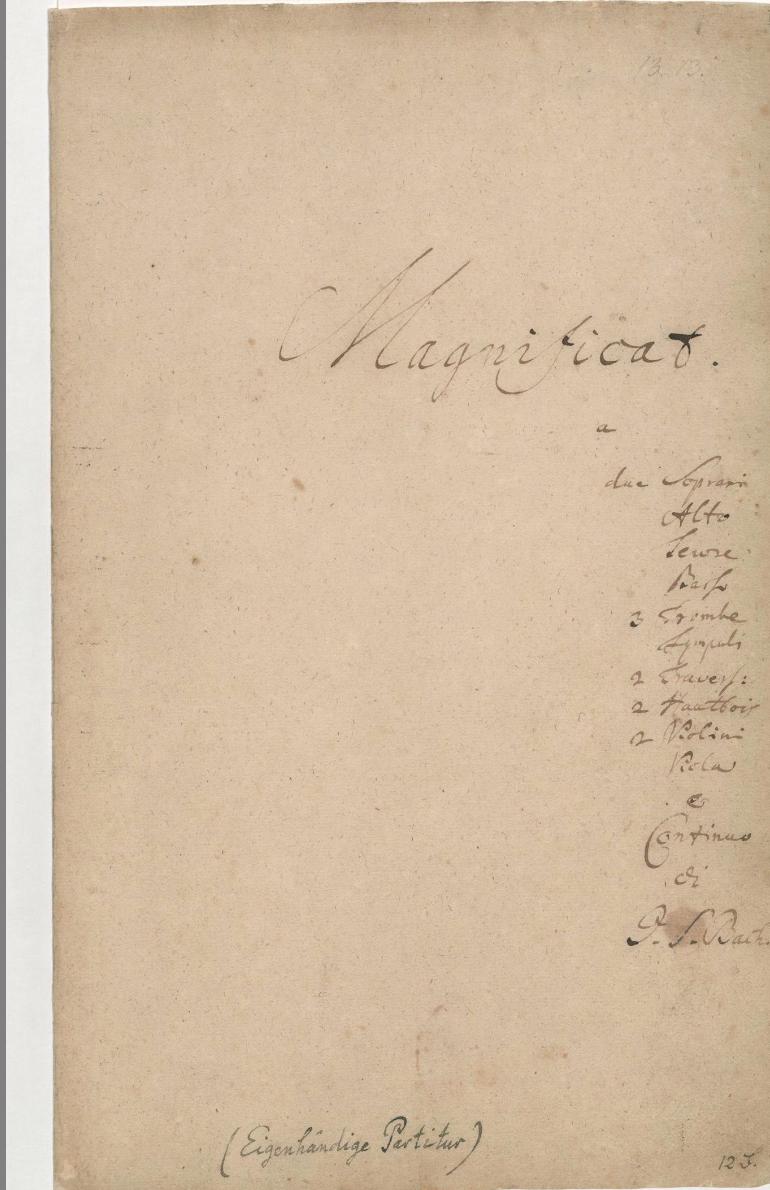 13. 13.
Magnificat.
a
due Soprani
Alto
Tenore
Basso
3 Trombe
Tympali
2 Travers:
2 Hautbois
2 Violini
Viola
e
Continuo
di
J. S. Bach.
(Eigenhändige Partitur)
123.